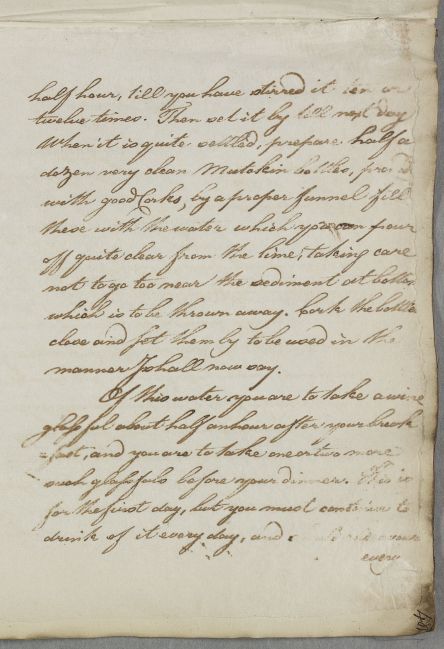 half hour, till you have stirred it ten or
twelve times. Then set it by till next day
When it is quite settled, prepare half a
dozen very clean Mutchkin bottles,
with good Corks, by a proper funnel fill
these with the water which you can pour
off quite clear from the lime, taking care
not to go too near the sediment at bottom
which is to be thrown away. Cork the bottles
close and set them by to be used in the
manner I shall now say.
Of this water you are to take a wine
glassful about half an hour after your break
=fast, and you are to take one or two more
such glassfuls before your dinner. This is
for the first day, but you must continue to
drink of it every day, and
every